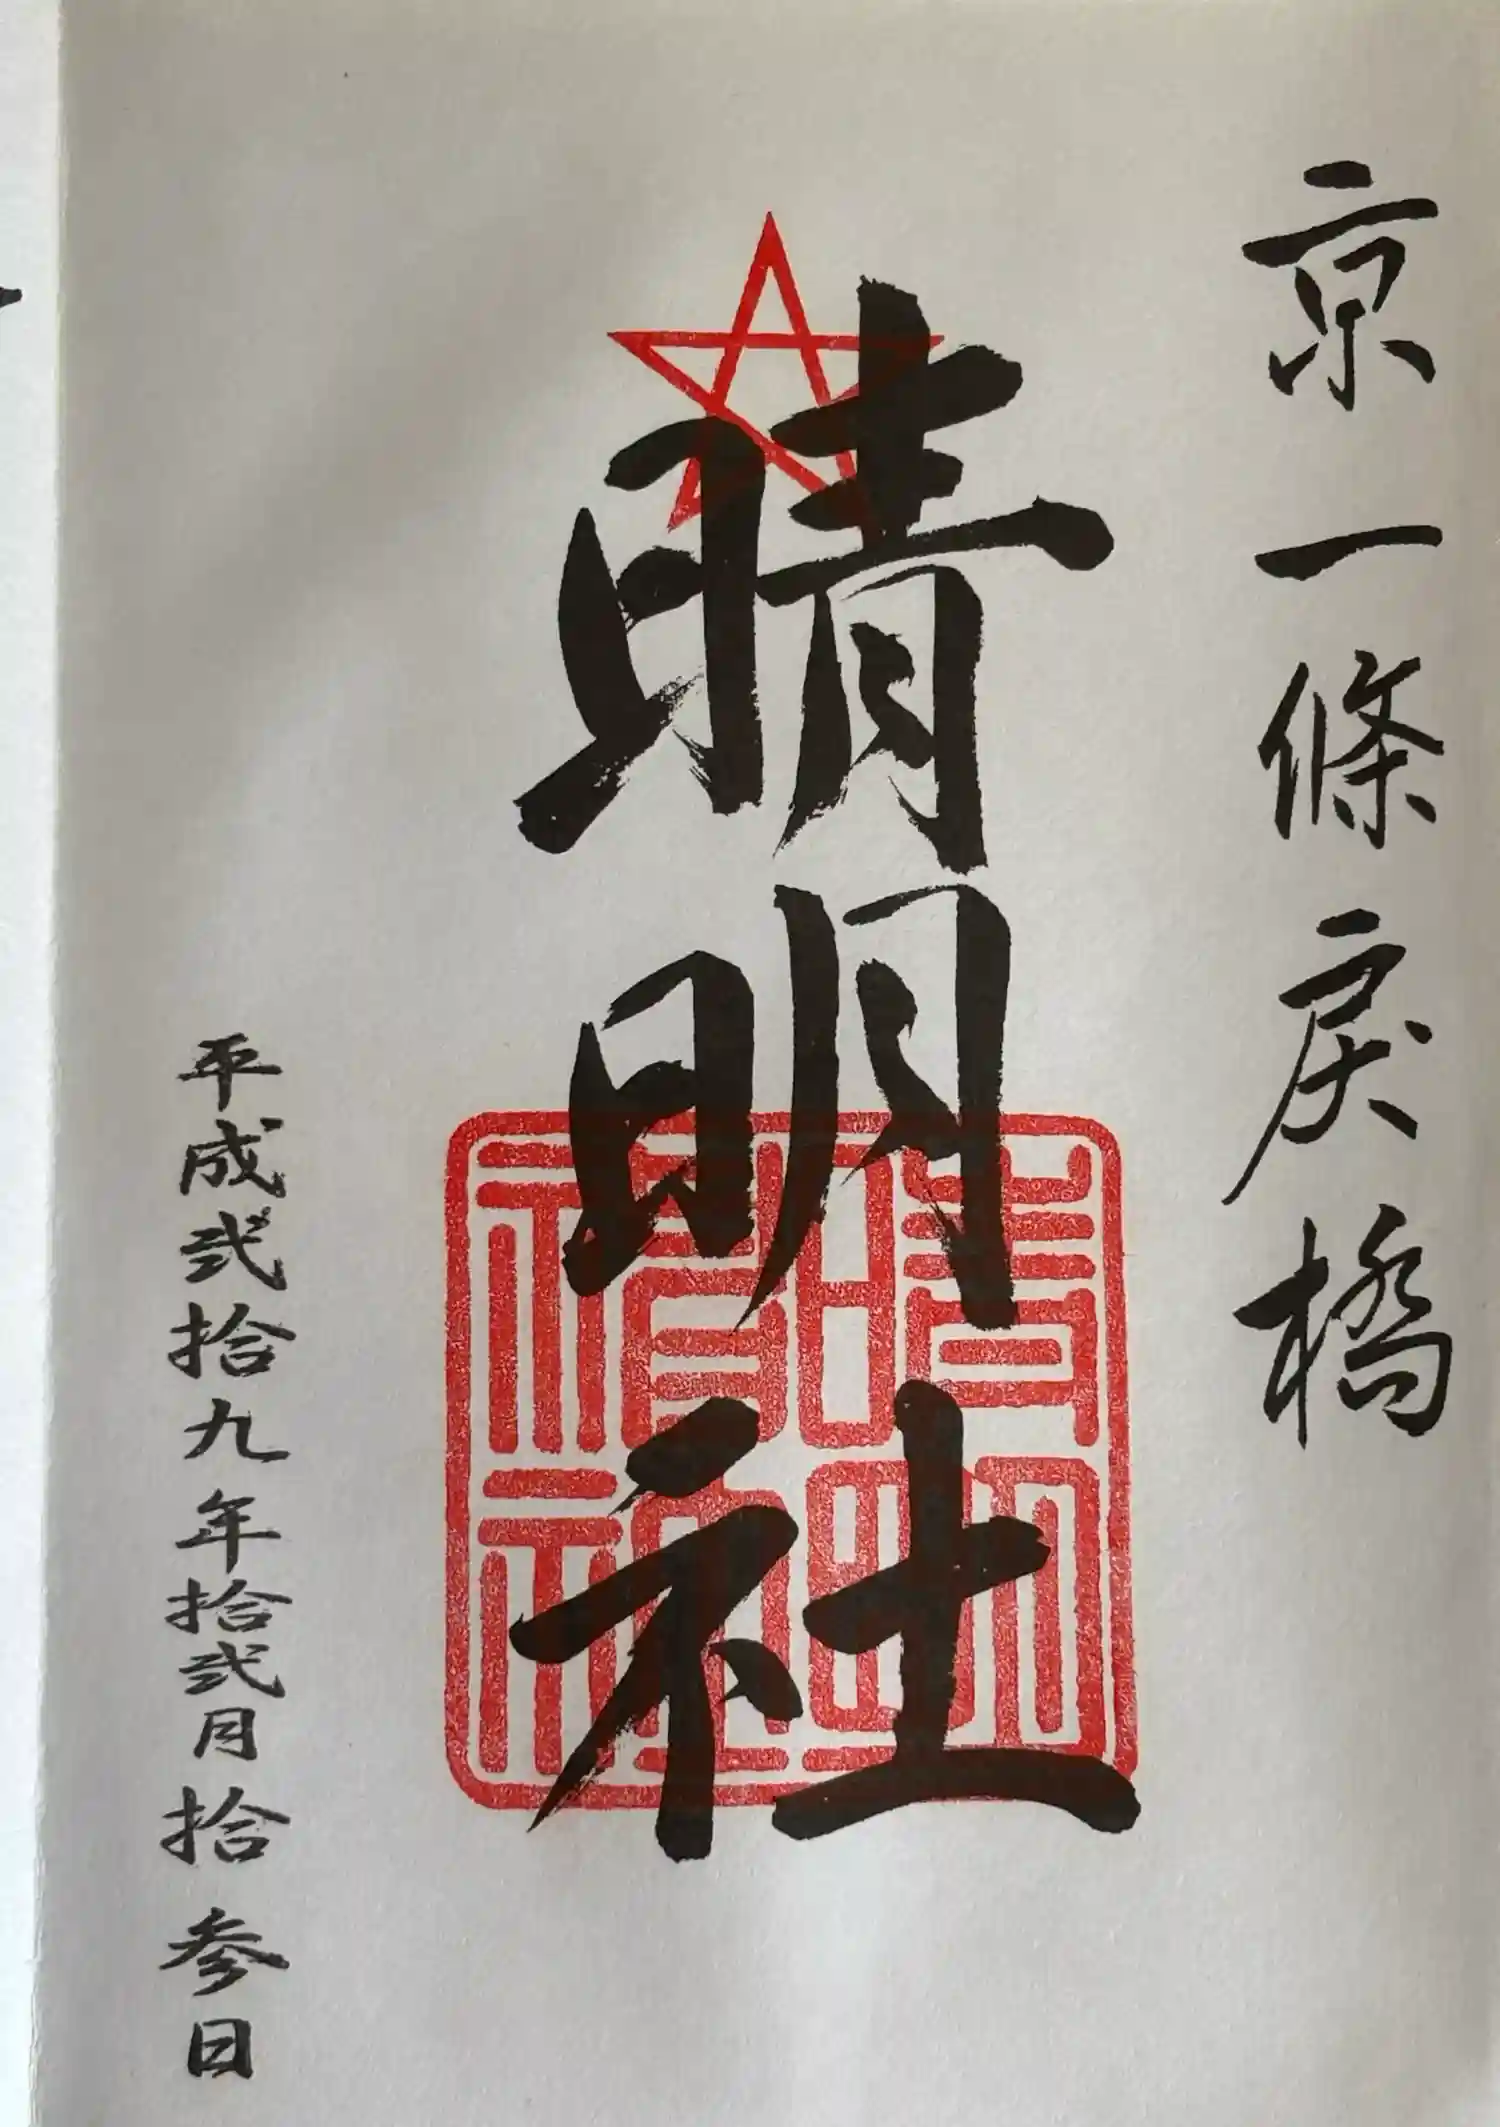 京一條戻橋
晴明社
晴明
神社
平成弐拾九年拾弐月拾参日